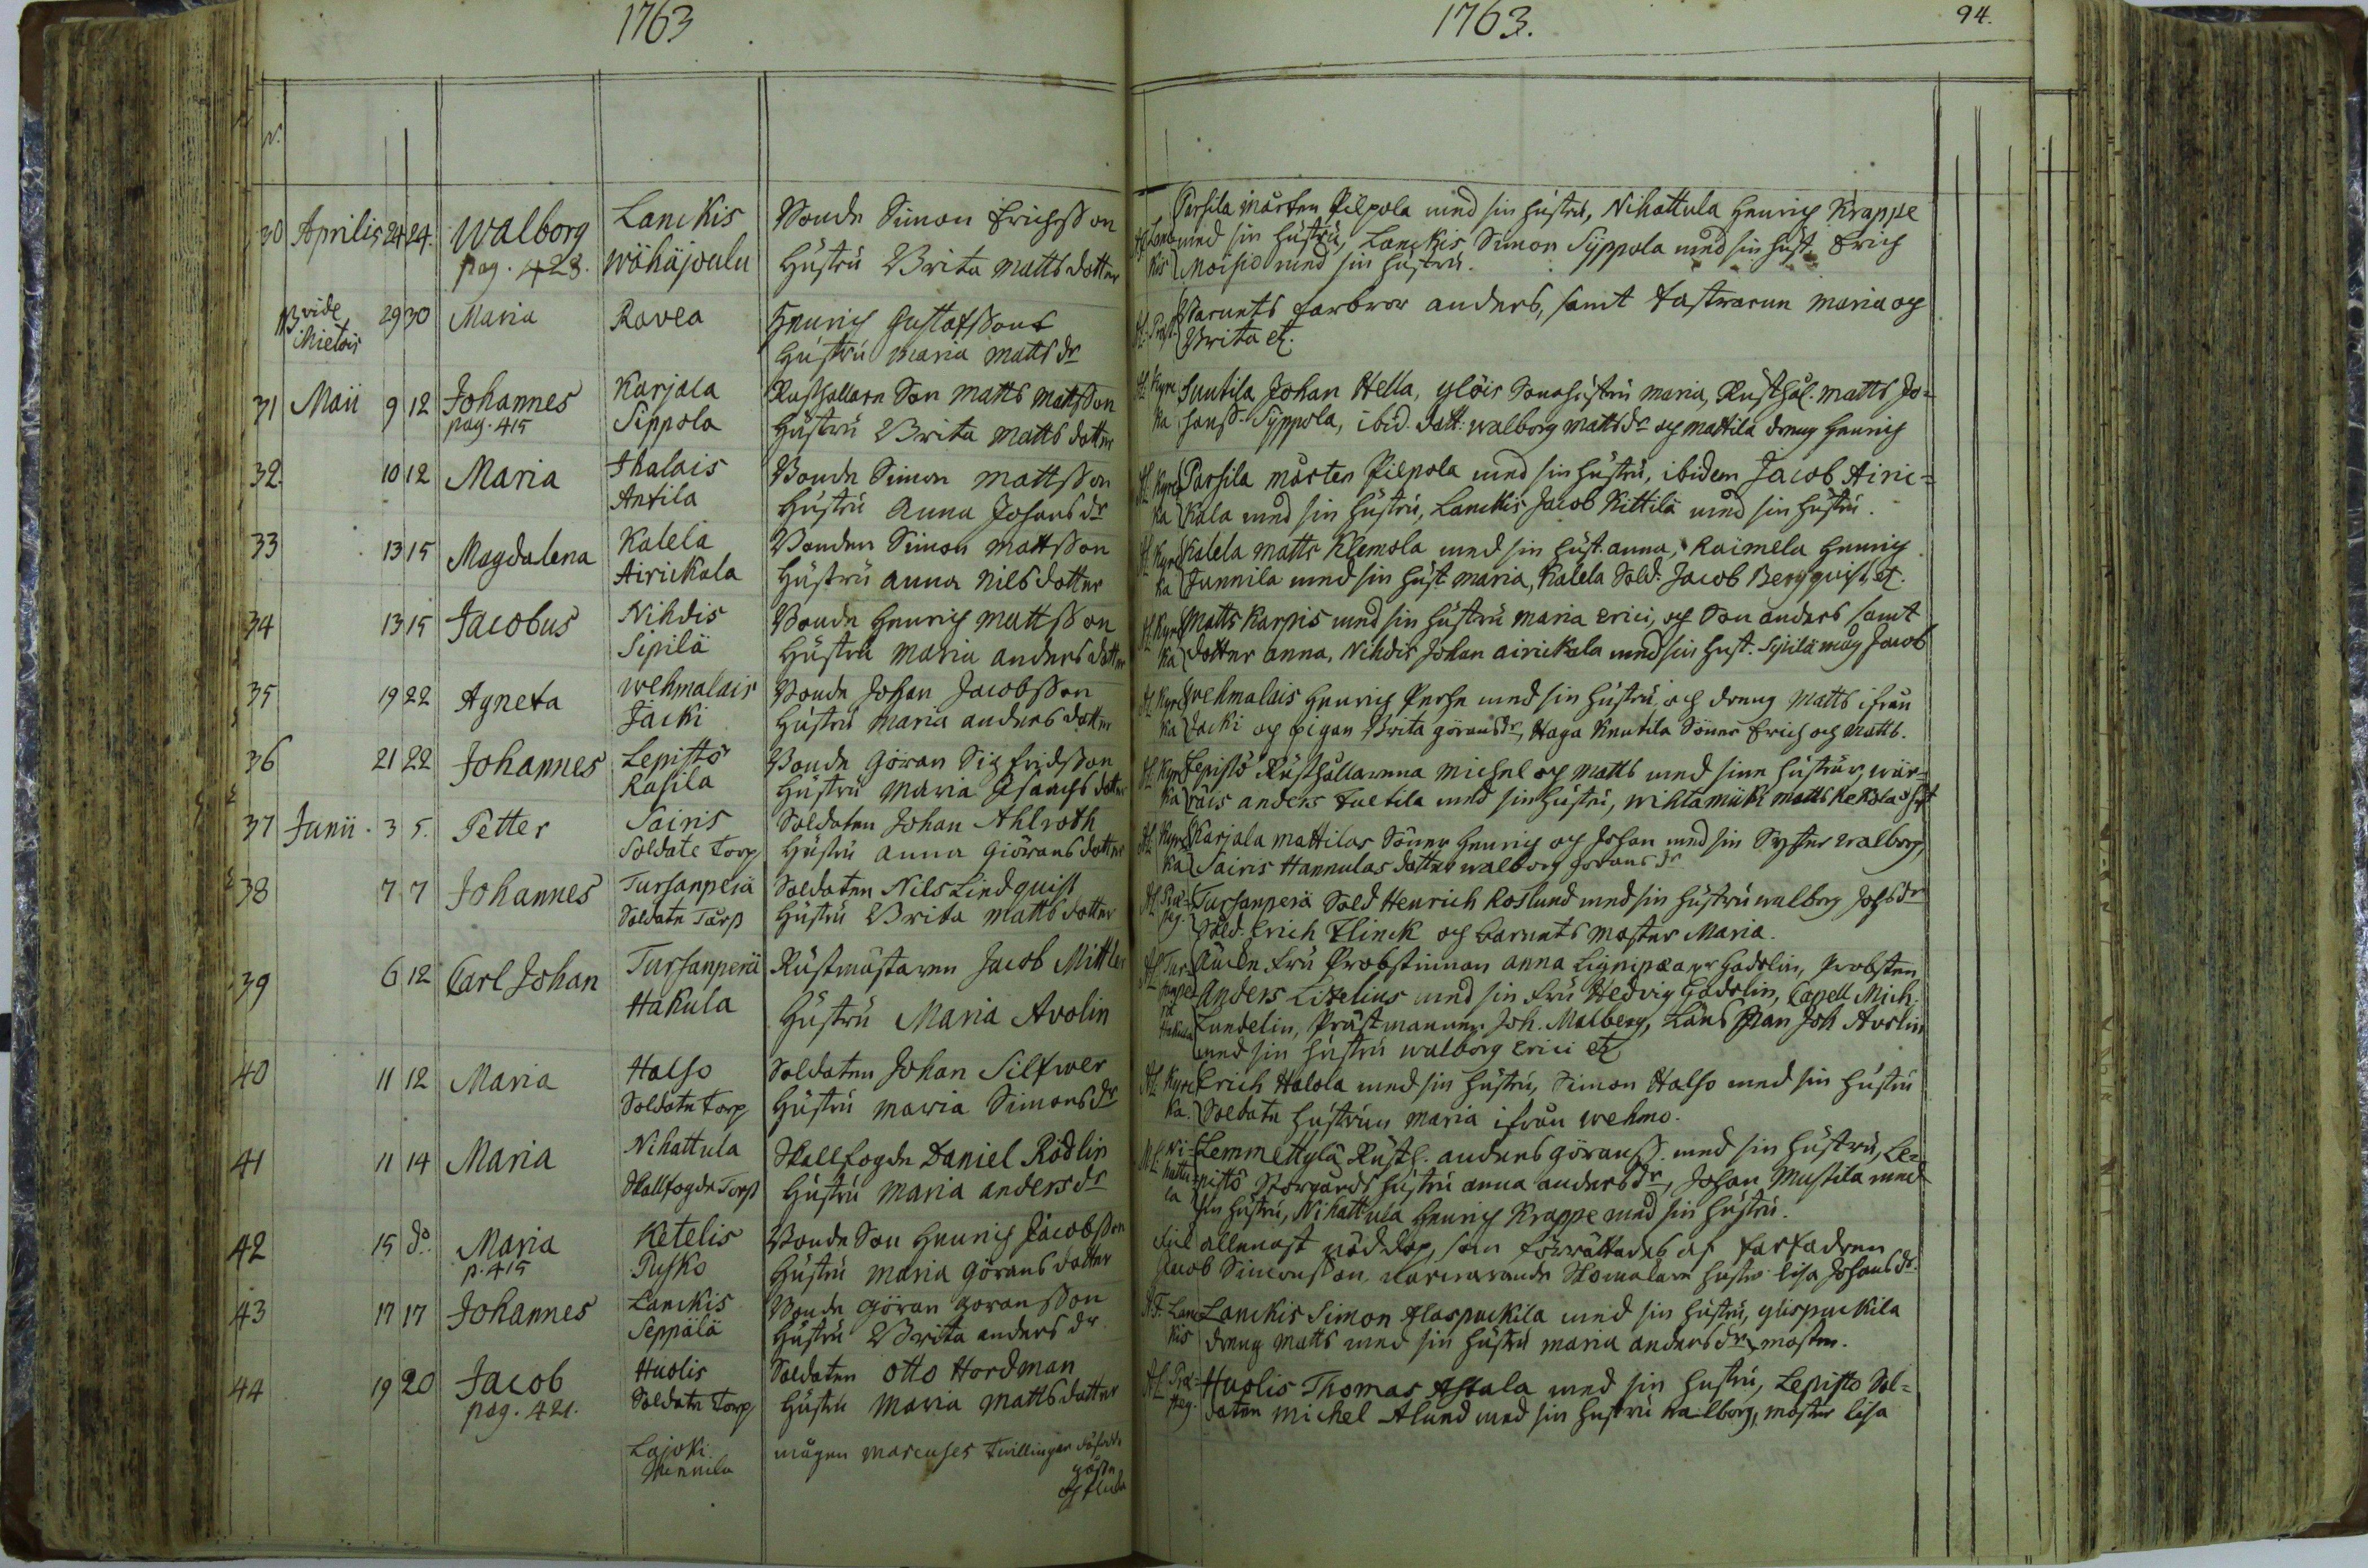 1763
1763.
94.
N.
30 Aprilis 24 24. Walborg Lanckis Bonde Simon Erichsson
pag. 428. Wähäjoulu Hustru Brita Matts dotter
Parsila Mårten Pilpola med sin hustru, Nihattula Henrich Krappe
med sin hustru, Lanckis Simon Syppola med sin hust. Erich
Moisio med sin hustru.
vide Mietois 29 30 Maria Ravea Henrich Gustafssons
Hustru Maria Matts dr
Barnets farbror Anders, samt fastrarne Maria och
Brita etc.
31 Maii 9 12 Johannes Karjala Rusthollare Son Matts Mattsson
pag. 415 Sippola Hustru Brita Matts dotter
Suutila Johan Hella, ylöis Sonahustru Maria, Rusthål. Matts Jo=
hanss. Syppola, ibid. dott. Walborg Matts dr och Mattila dreng Henrich
32. 10 12 Maria Ihalais Bonde Simon Mattsson
Antila Hustru Anna Johans dr
Kyrc ka Parsila Mårten Pilpola med sin hustru, ibidem Jacob Airic=
kala med sin hustru, Lanckis Jacob Kittilä med sin hustru.
33 13 15 Magdalena Kalela Bonden Simon Mattsson
Airickala Hustru Anna Nils dotter
Kyrc ka Kalela Matts Klemola med sin hust. Anna, Raimela Henrich
Junnila med sin hust Maria, Kalela Sold. Jacob Bergquist, etc.
34 13 15 Jacobus Nihdis Bonde Henrich Mattsson
Sipilä Hustru Maria Anders dotter
Kyrc ka Matts Karpis med sin hustru Maria Erici, och Son Anders samt
dotter Anna, Nihdis Johan Airickala med sin hust. Sipilä måg Jacob
35 19 22 Agneta Wehmalais Bonde Johan Jacobsson
Jäcki Hustru Maria Anders dotter
Kyrc ka Wehmalais Henrich Perhe med sin hustru, och dreng Matts ifrån
Jacki och pigan Brita Görans dr, Haga Knutila Söner Erich och Matts.
36 21 22 Johannes Lepistö Bonde Göran Sigfridsson
Rasila Hustru Maria Isaachs dotter
Kyrc ka Lepistö Rusthållarena Michel och Matts med sine hustrur, wär=
väis Anders Tuetila med sin hustru, Wihtamäki Matts Kekola
37 Junii. 3 5. Petter Sairis Soldaten Johan Ahlroth
Soldate Torp Hustru Anna Giörans dotter
Kyrc ka Karjala Mattilas Söner Henrich och Johan med sin Syster Walborg,
Sairis Hannulas dotter Walborg Görans dr
38 7 7 Johannes Tursanperä Soldaten Nils Lindquist
Soldate Torp Hustru Brita Matts dotter
Tursanperä Sold Henrich Roslund med sin hustru Walborg Johs dr
Sold. Erich Flinck och barnets moster Maria.
39 6 12 Carl Johan Tursanperä Rustmästaren Jacob Mittler
Hakula Hustru Maria Avolin
Fru Probstinnan Anna Lignipæa Gadolin, Probsten
Anders Lizelius med sin Fru Hedvig Gadolin, Capell. Mich.
Lundelin, Prästmannen Joh. Malberg, Läns Man Joh Avolin
med sin hustru Walborg Erici etc
40 11 12 Maria Halso Soldaten Johan Silfwer
Soldate Torp Hustru Maria Simons dr
Kyrc ka. Erich Halola med sin hustru, Simon Halso med sin hustru
Soldate hustrun Maria ifrån Wehmo.
41 11 14 Maria Nihattula Skallfogde Daniel Rödlin
Skallfogde Torp Hustru Maria Anders dr
Ni= hattu= la Lemmettylä Rusth. Anders Görans. med sin hustru, Le=
pistö Storgårds hustru Anna Anders dr, Johan Mustila med
sin hustru, Nihattula Henrich Krappe med sin hustru.
42 15 do. Maria Ketelis Bonde Son Henrich Jacobsson
p. 415 Pusko Hustru Maria Görans dotter
allenast nöddop, som förrättades af farfadren
Jacob Simonsson, närwarande Skomakare hustru Lisa Johans dr
43 17 17 Johannes Lanckis Bonde Göran Göransson
Seppälä Hustru Brita Anders dr
Lanc kis Lanckis Simon Alaspuckila med sin hustru, ylispuckila
dreng Matts med sin hustru Maria Anders dr, moster.
44 19 20 Jacob Huolis Soldaten Otto Hordman
pag. 421. Soldate Torp Hustru Maria Matts dotter
Huolis Thomas Astala med sin hustru, Lepisto Sol=
daten Michel Alund med sin hustru Walborg, moster Lisa
Lajoki mågen Marcuses Twillingar